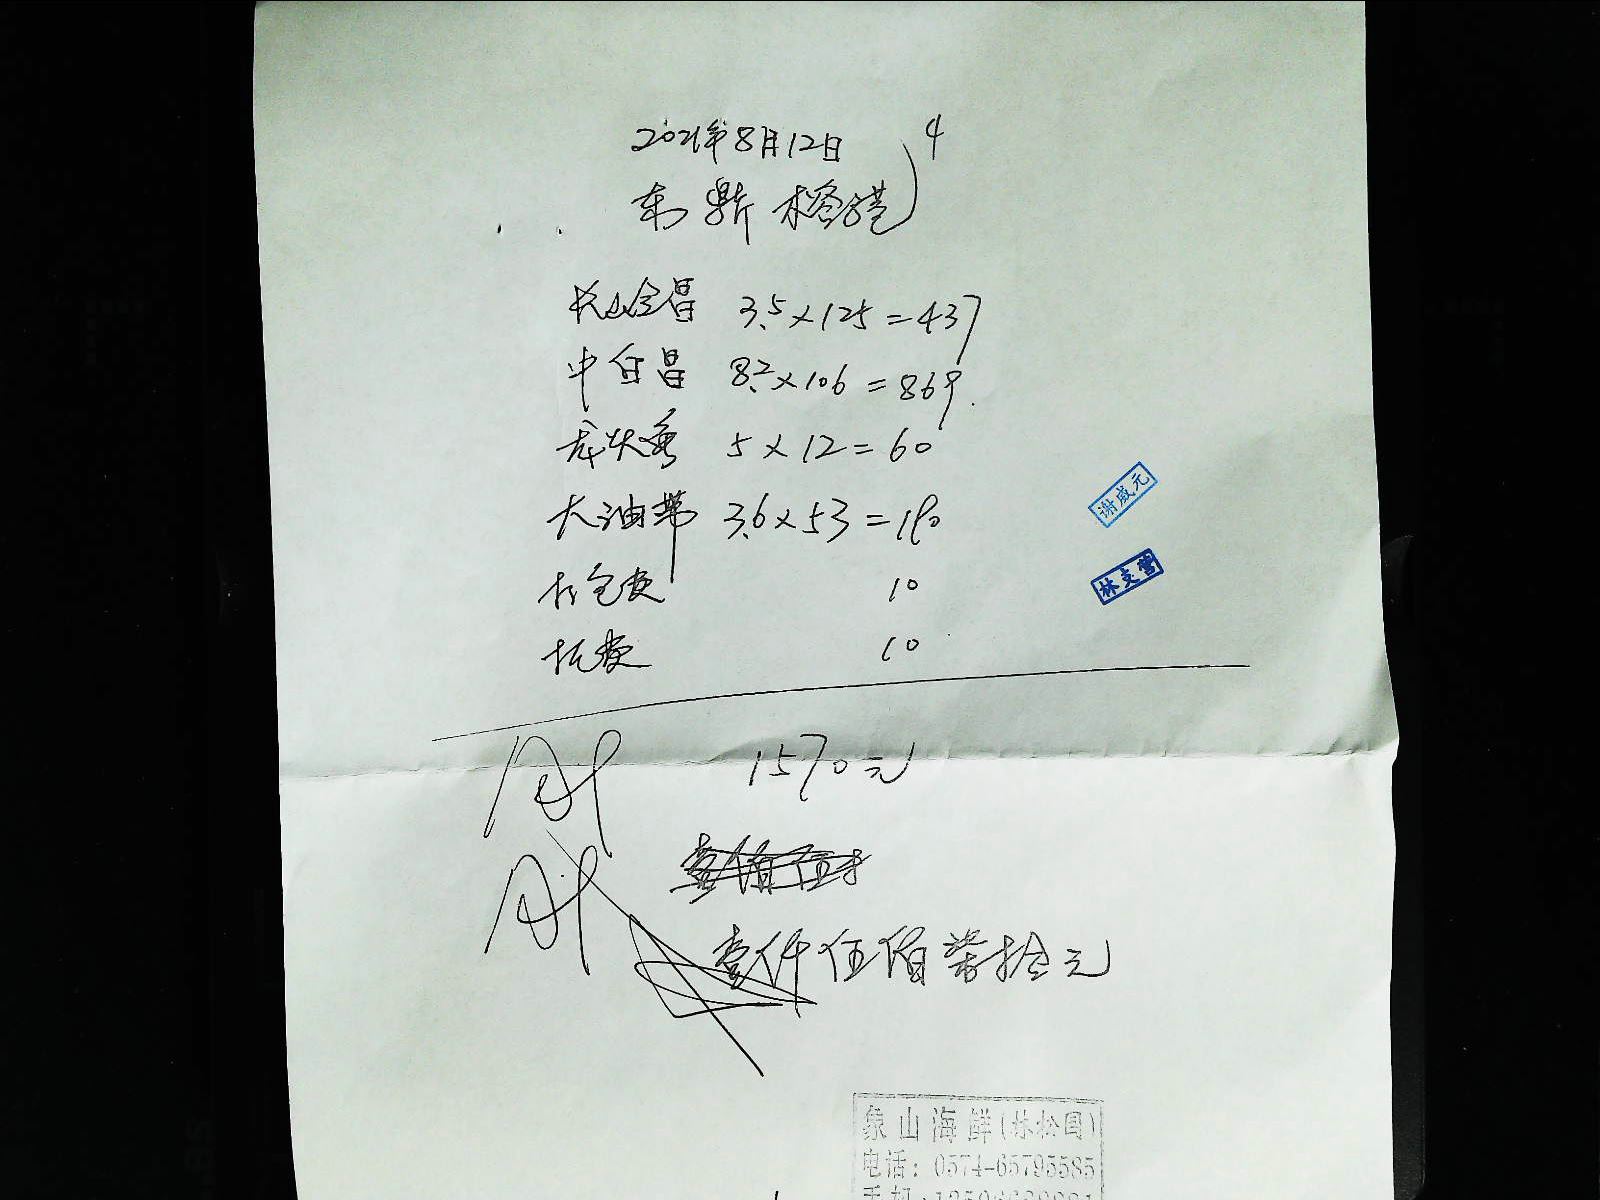 2021年8月12日 4
东鼎榕港
3.5×125=437
中白昌 8.2×106=869
龙头鱼 5×12=60
大油带 3.6×53=190
打包费 10
托费 10
1570元
壹仟伍佰柒拾元
谢威元
林支营
象山海鲜(林松国)
电话: 0574-65795585